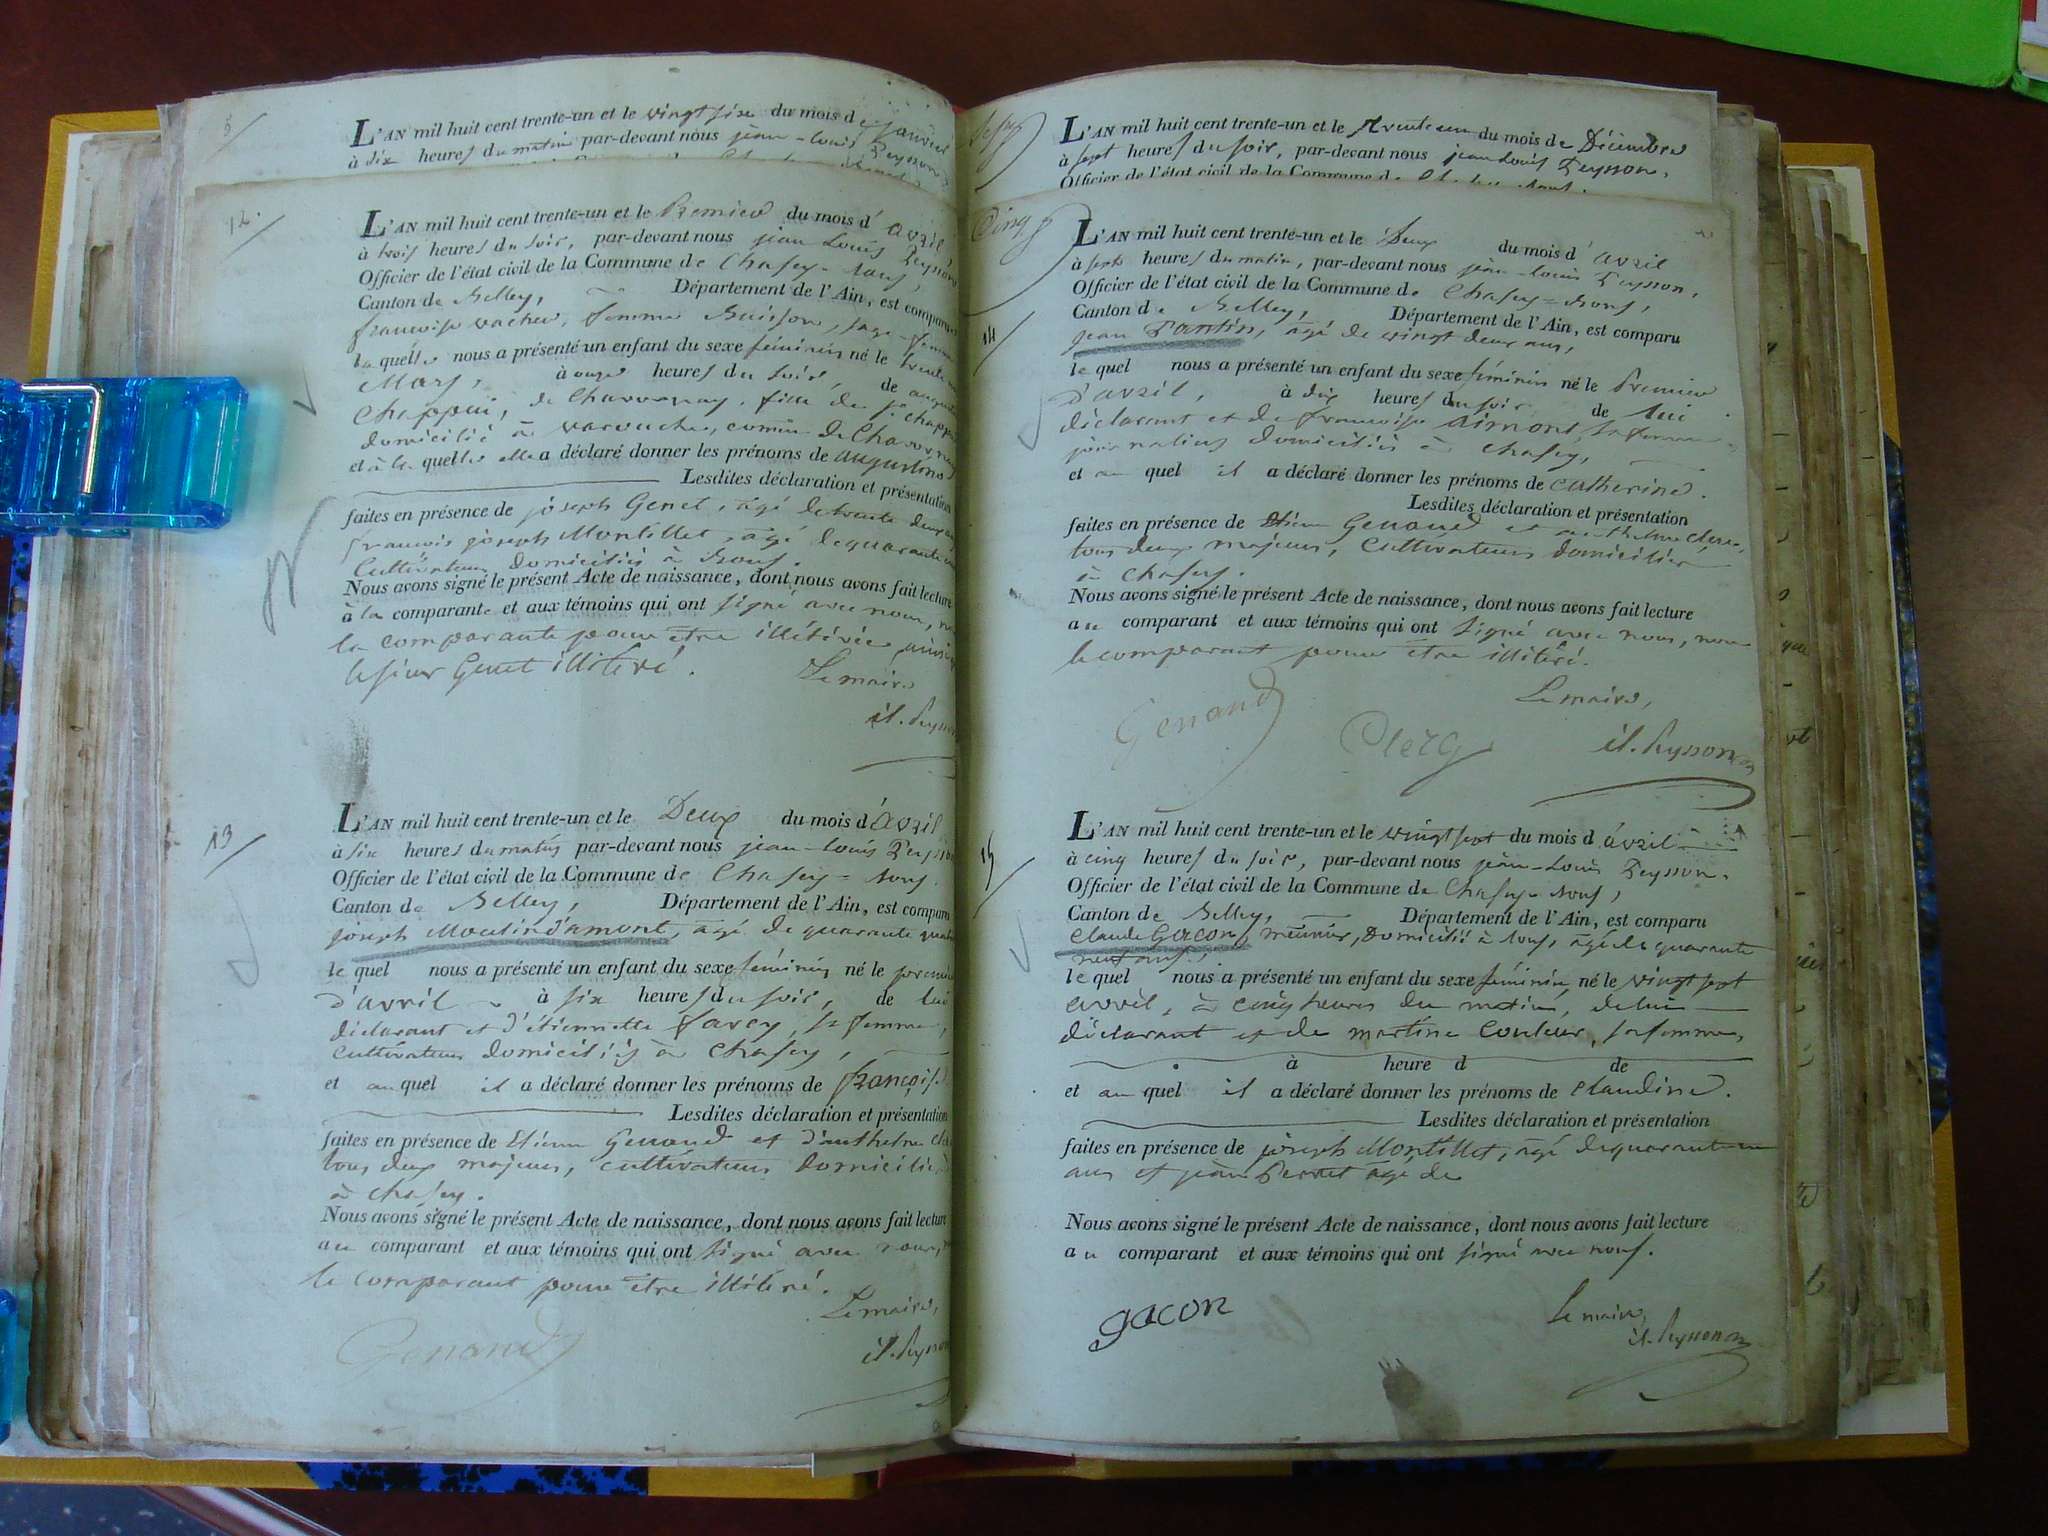 5
L'AN mil huit cent trente-un et le vingt six du mois de janvier
à six heures du matin par-devant nous jean-louis Peysson
12.
L'AN mil huit cent trente-un et le Premier du mois d'avril
à trois heures du soir, par-devant nous jean Louis Peysson
Officier de l'état civil de la Commune de Chasey-
Canton de Belley, Département de l'Ain, est comparu
françoise vacher, femme Buisson, sage-femme
la quelle nous a présenté un enfant du sexe féminin né le trente
Mars, à onze heures du soir, de
Chappui, de Chavornay, fille de
domicilié à comune de Chavornay
et à la quelle elle a déclaré donner les prénoms de augustine
Lesdites déclaration et présentation
faites en présence de joseph Genet, agé de trente deux
françois joseph Montillet, agé de quarante
Cultivateurs domiciliés à
Nous avons signé le présent Acte de naissance, dont nous avons fait lecture
à la comparante et aux témoins qui ont signé avec nous,
la comparante pour être illitérée, ainsi
le sieur Genet illitéré.
Le maire
j.l. Peysson
13
L'AN mil huit cent trente-un et le Deux du mois d'avril
à six heures du matin par-devant nous jean-louis Peysson
Officier de l'état civil de la Commune de Chasey-
Canton de Belley, Département de l'Ain, est comparu
joseph Moulin d'amont, agé de quarante quatre
le quel nous a présenté un enfant du sexe féminin né le premier
d'avril à six heures du soir, de lui
déclarant et d'étiennette favey, sa femme,
cultivateurs domiciliés à Chasey,
et au quel il a déclaré donner les prénoms de françoise
Lesdites déclaration et présentation
faites en présence de Etienne Genand et d'anthelme
tous deux majeurs, cultivateurs domiciliés
à Chasey.
Nous avons signé le présent Acte de naissance, dont nous avons fait lecture
au comparant et aux témoins qui ont signé avec nous,
le comparant pour être illitéré.
Le maire,
j.l. Peysson
Genand
L'AN mil huit cent trente-un et le trente un du mois de Décembre
à sept heures du soir, par-devant nous jean Louis Peysson,
Officier de l'état civil de la Commune de
Cinq
L'AN mil huit cent trente-un et le Deux du mois d'avril
à sept heures du matin, par-devant nous jean-louis Peysson,
Officier de l'état civil de la Commune de Chasey-
Canton de Belley, Département de l'Ain, est comparu
14
jean Pantin, agé de vingt deux ans,
le quel nous a présenté un enfant du sexe féminin né le Premier
d'avril, à dix heures du soir de lui
déclarant et de françoise aimont, sa femme
journaliers domiciliés à Chasey,
et au quel il a déclaré donner les prénoms de Catherine.
Lesdites déclaration et présentation
faites en présence de Etienne Genand et anthelme Clerc,
tous deux majeurs, Cultivateurs domiciliés
à Chasey.
Nous avons signé le présent Acte de naissance, dont nous avons fait lecture
au comparant et aux témoins qui ont signé avec nous, non
le comparant pour être illitéré.
Le maire,
Genand Clerg j.l. Peysson
15
L'AN mil huit cent trente-un et le vingt sept du mois d'avril
à cinq heures du soir, par-devant nous jean-Louis Peysson,
Officier de l'état civil de la Commune de Chasey-
Canton de Belley, Département de l'Ain, est comparu
Claude Gacon, meunier, Domicilié à agé de quarante
neuf ans,
le quel nous a présenté un enfant du sexe féminin, né le vingt sept
avril, à cinq heures du matin, de lui
déclarant et de martine Couleur, sa femme,
à heure d de
et au quel il a déclaré donner les prénoms de Claudine.
Lesdites déclaration et présentation
faites en présence de joseph Montillet, agé de quarante
ans et jean Perret agé de
Nous avons signé le présent Acte de naissance, dont nous avons fait lecture
au comparant et aux témoins qui ont signé avec nous.
Le maire,
gacon j.l. Peysson